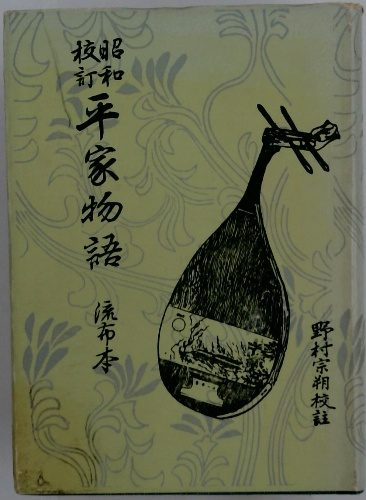 昭和
校訂
平家物語 流布本
野村宗朔校註